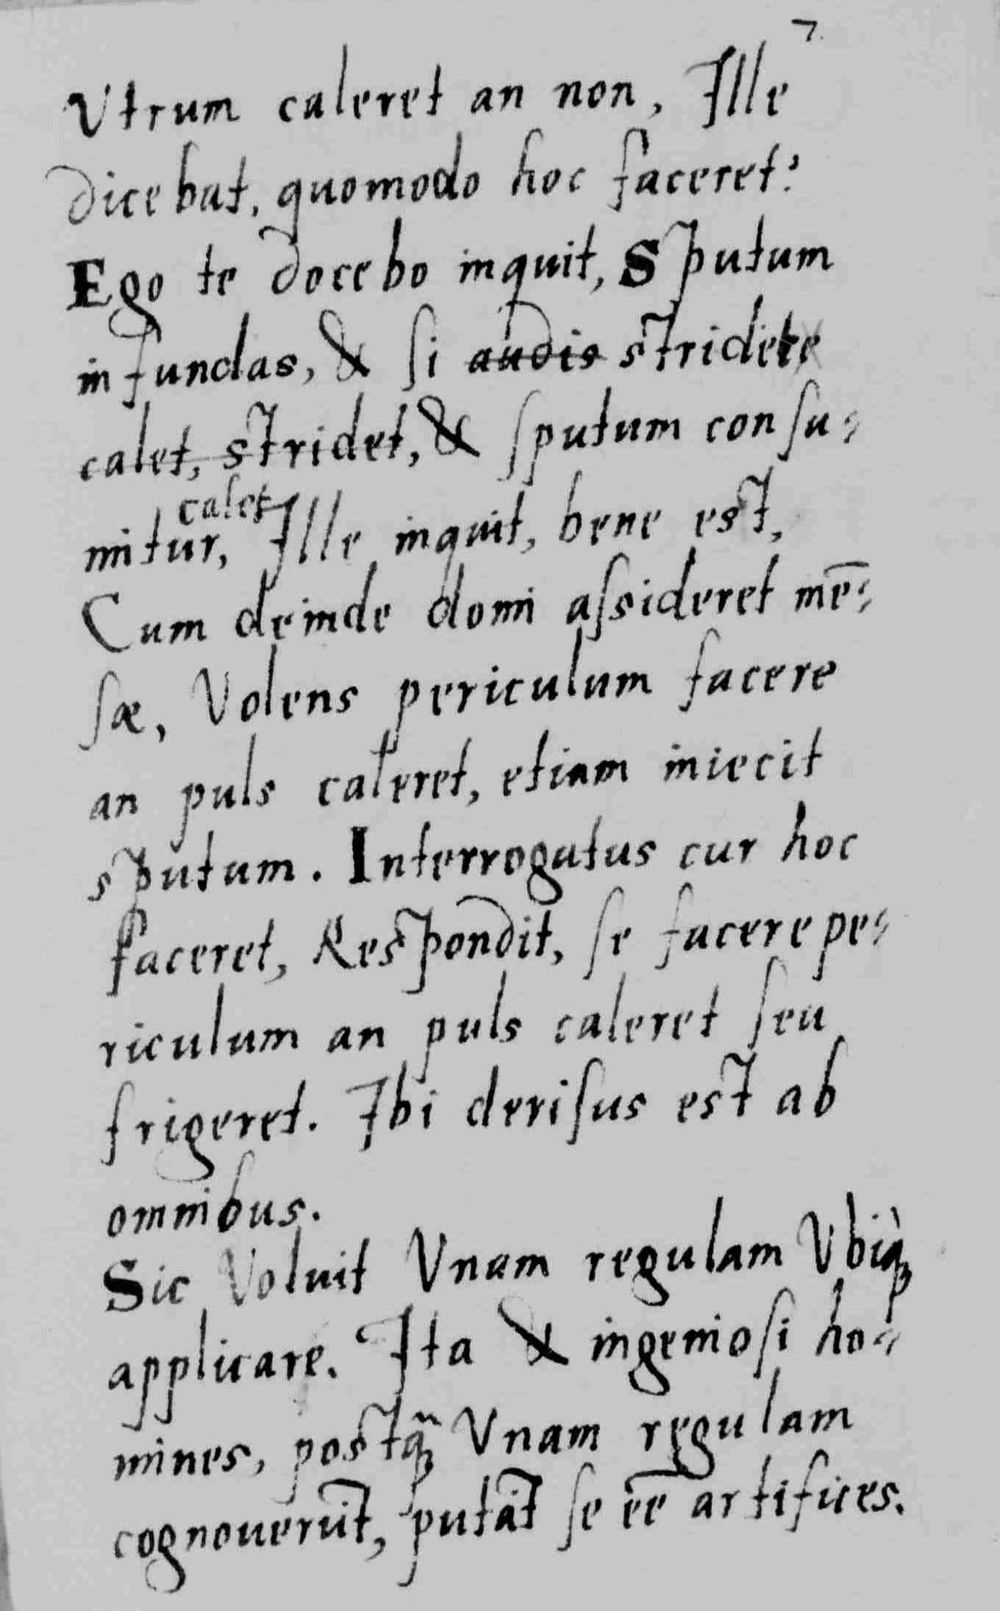 7.
Vtrum caleret an non, Ille
dicebat, quomodo hoc faceret?
Ego te docebo inquit, Sputum
infundas, & ſi audis stridere
calet, stridet, & ſputum conſu⸗
calet
mitur, Ille inquit, bene est,
Cum deinde domi aſsideret mē⸗
ſæ, Volens periculum facere
an puls caleret, etiam iniecit
sputum. Interrogatus cur hoc
faceret, Respondit, ſe facere pe⸗
riculum an puls caleret ſeu
frigeret. Ibi deriſus est ab
omnibus.
Sic Voluit Vnam regulam Vbiq̀ꝫ
applicare. Ita & ingenioſi ho⸗
mines, postq̃ꝫ Vnam regulam
cognouerūt, putāt ſe ēē artifices.